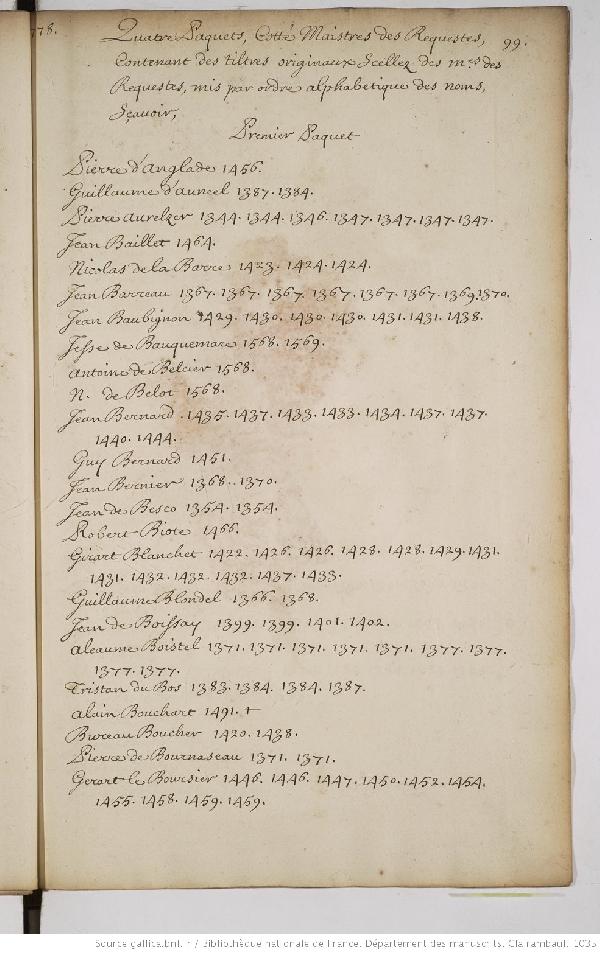 778.
99.
Quatre Paquets, Cotté Maistres des Requestes,
Contenant des tiltres originaux Scellez des m.es des
Requestes, mis par ordre alphabetique des noms,
Sçauoir,
Premier Paquet
Pierre d'Anglade 1456.
Guillaume d'auncel 1387. 1384.
Pierre aurelzer 1344. 1344. 1346. 1347. 1347. 1347. 1347.
Jean Baillet 1464.
Nicolas de la Barre 1423. 1424. 1424.
Jean Barreau 1367. 1367. 1367. 1367. 1367. 1367. 1369. 1370.
Jean Baubignon 1429. 1430. 1430. 1430. 1431. 1431. 1438.
Jesse de Bauquemare 1568. 1569.
antoine de Belcier 1568.
N. de Belot 1568.
Jean Bernard 1435. 1437. 1433. 1433. 1434. 1437. 1437.
1440. 1444.
Guy Bernard 1451.
Jean Bernier 1368. 1370.
Jean de Besco 1354. 1354.
Robert Biote 1466.
Girart Blanchet 1422. 1426. 1426. 1428. 1428. 1429. 1431.
1431. 1432. 1432. 1432. 1437. 1433.
Guillaume Blondel 1366. 1368.
Jean de Boissay 1399. 1399. 1401. 1402.
aleaume Boistel 1371. 1371. 1371. 1371. 1371. 1377. 1377.
1377. 1377.
Tristan du Bos 1383. 1384. 1384. 1387.
alain Bouchart 1491. +
Bureau Boucher 1420. 1438.
Pierre de Bournaseau 1371. 1371.
Gerart le Boursier 1446. 1446. 1447. 1450. 1452. 1454.
1455. 1458. 1459. 1459.
Source gallica.bnf.fr / Bibliothèque nationale de France. Département des manuscrits. Clairambault 1035